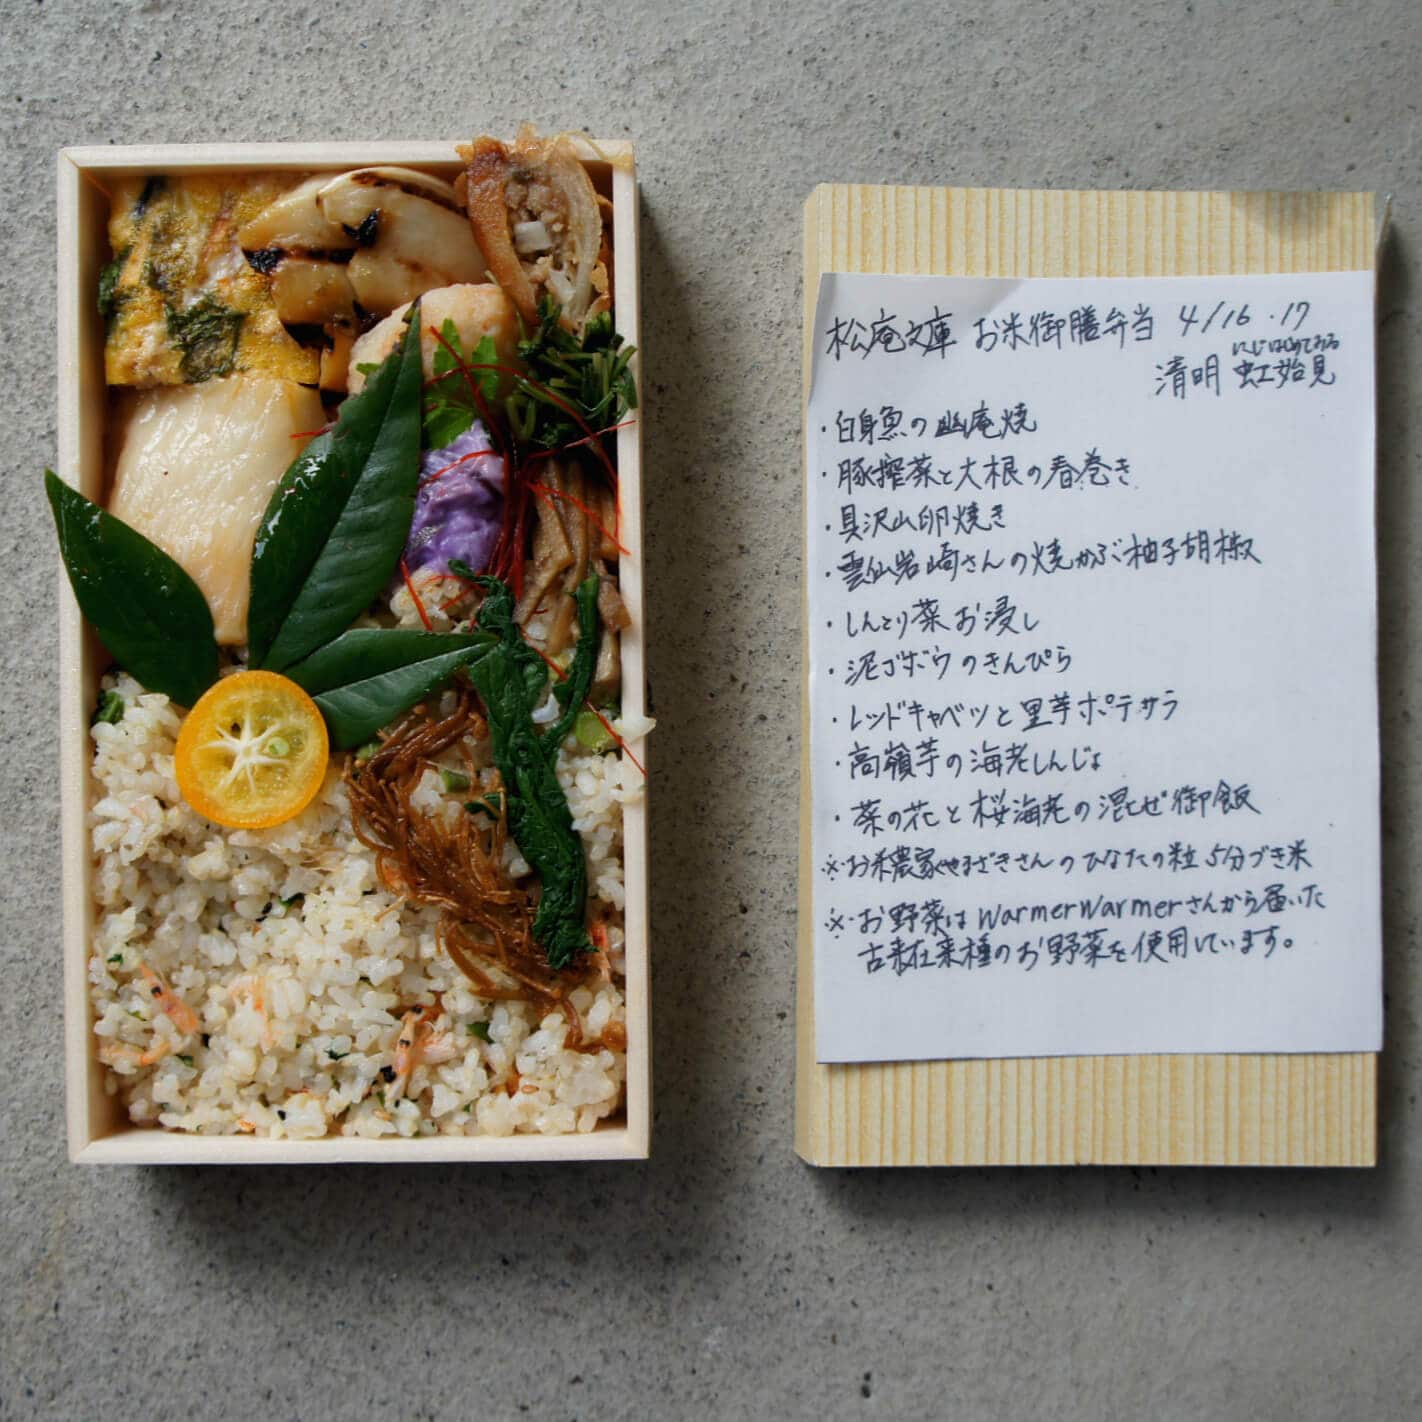 松庵文庫 お米御膳弁当 4/16.17
にじはじめてみる
清明 虹始見
・白身魚の幽庵焼
・豚搾菜と大根の春巻き
・具沢山卵焼き
・雲仙岩崎さんの焼かぶ柚子胡椒
・しんとり菜お浸し
・泥ゴボウのきんぴら
・レッドキャベツと里芋ポテサラ
・高嶺芋の海老しんじょ
・菜の花と桜海老の混ぜ御飯
※お米農家やまざきさんのひなたの粒 5分づき米
※お野菜はwarmerwarmerさんから届いた
古来在来種のお野菜を使用しています。